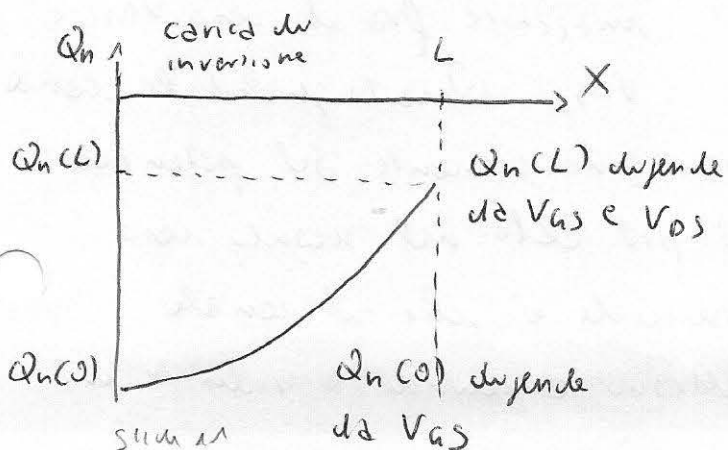 Qn
carica di
inversione
L
X
Qn(L)
Qn(L) dipende
da VGS e VDS
Qn(0)
Qn(0) dipende
da VGS